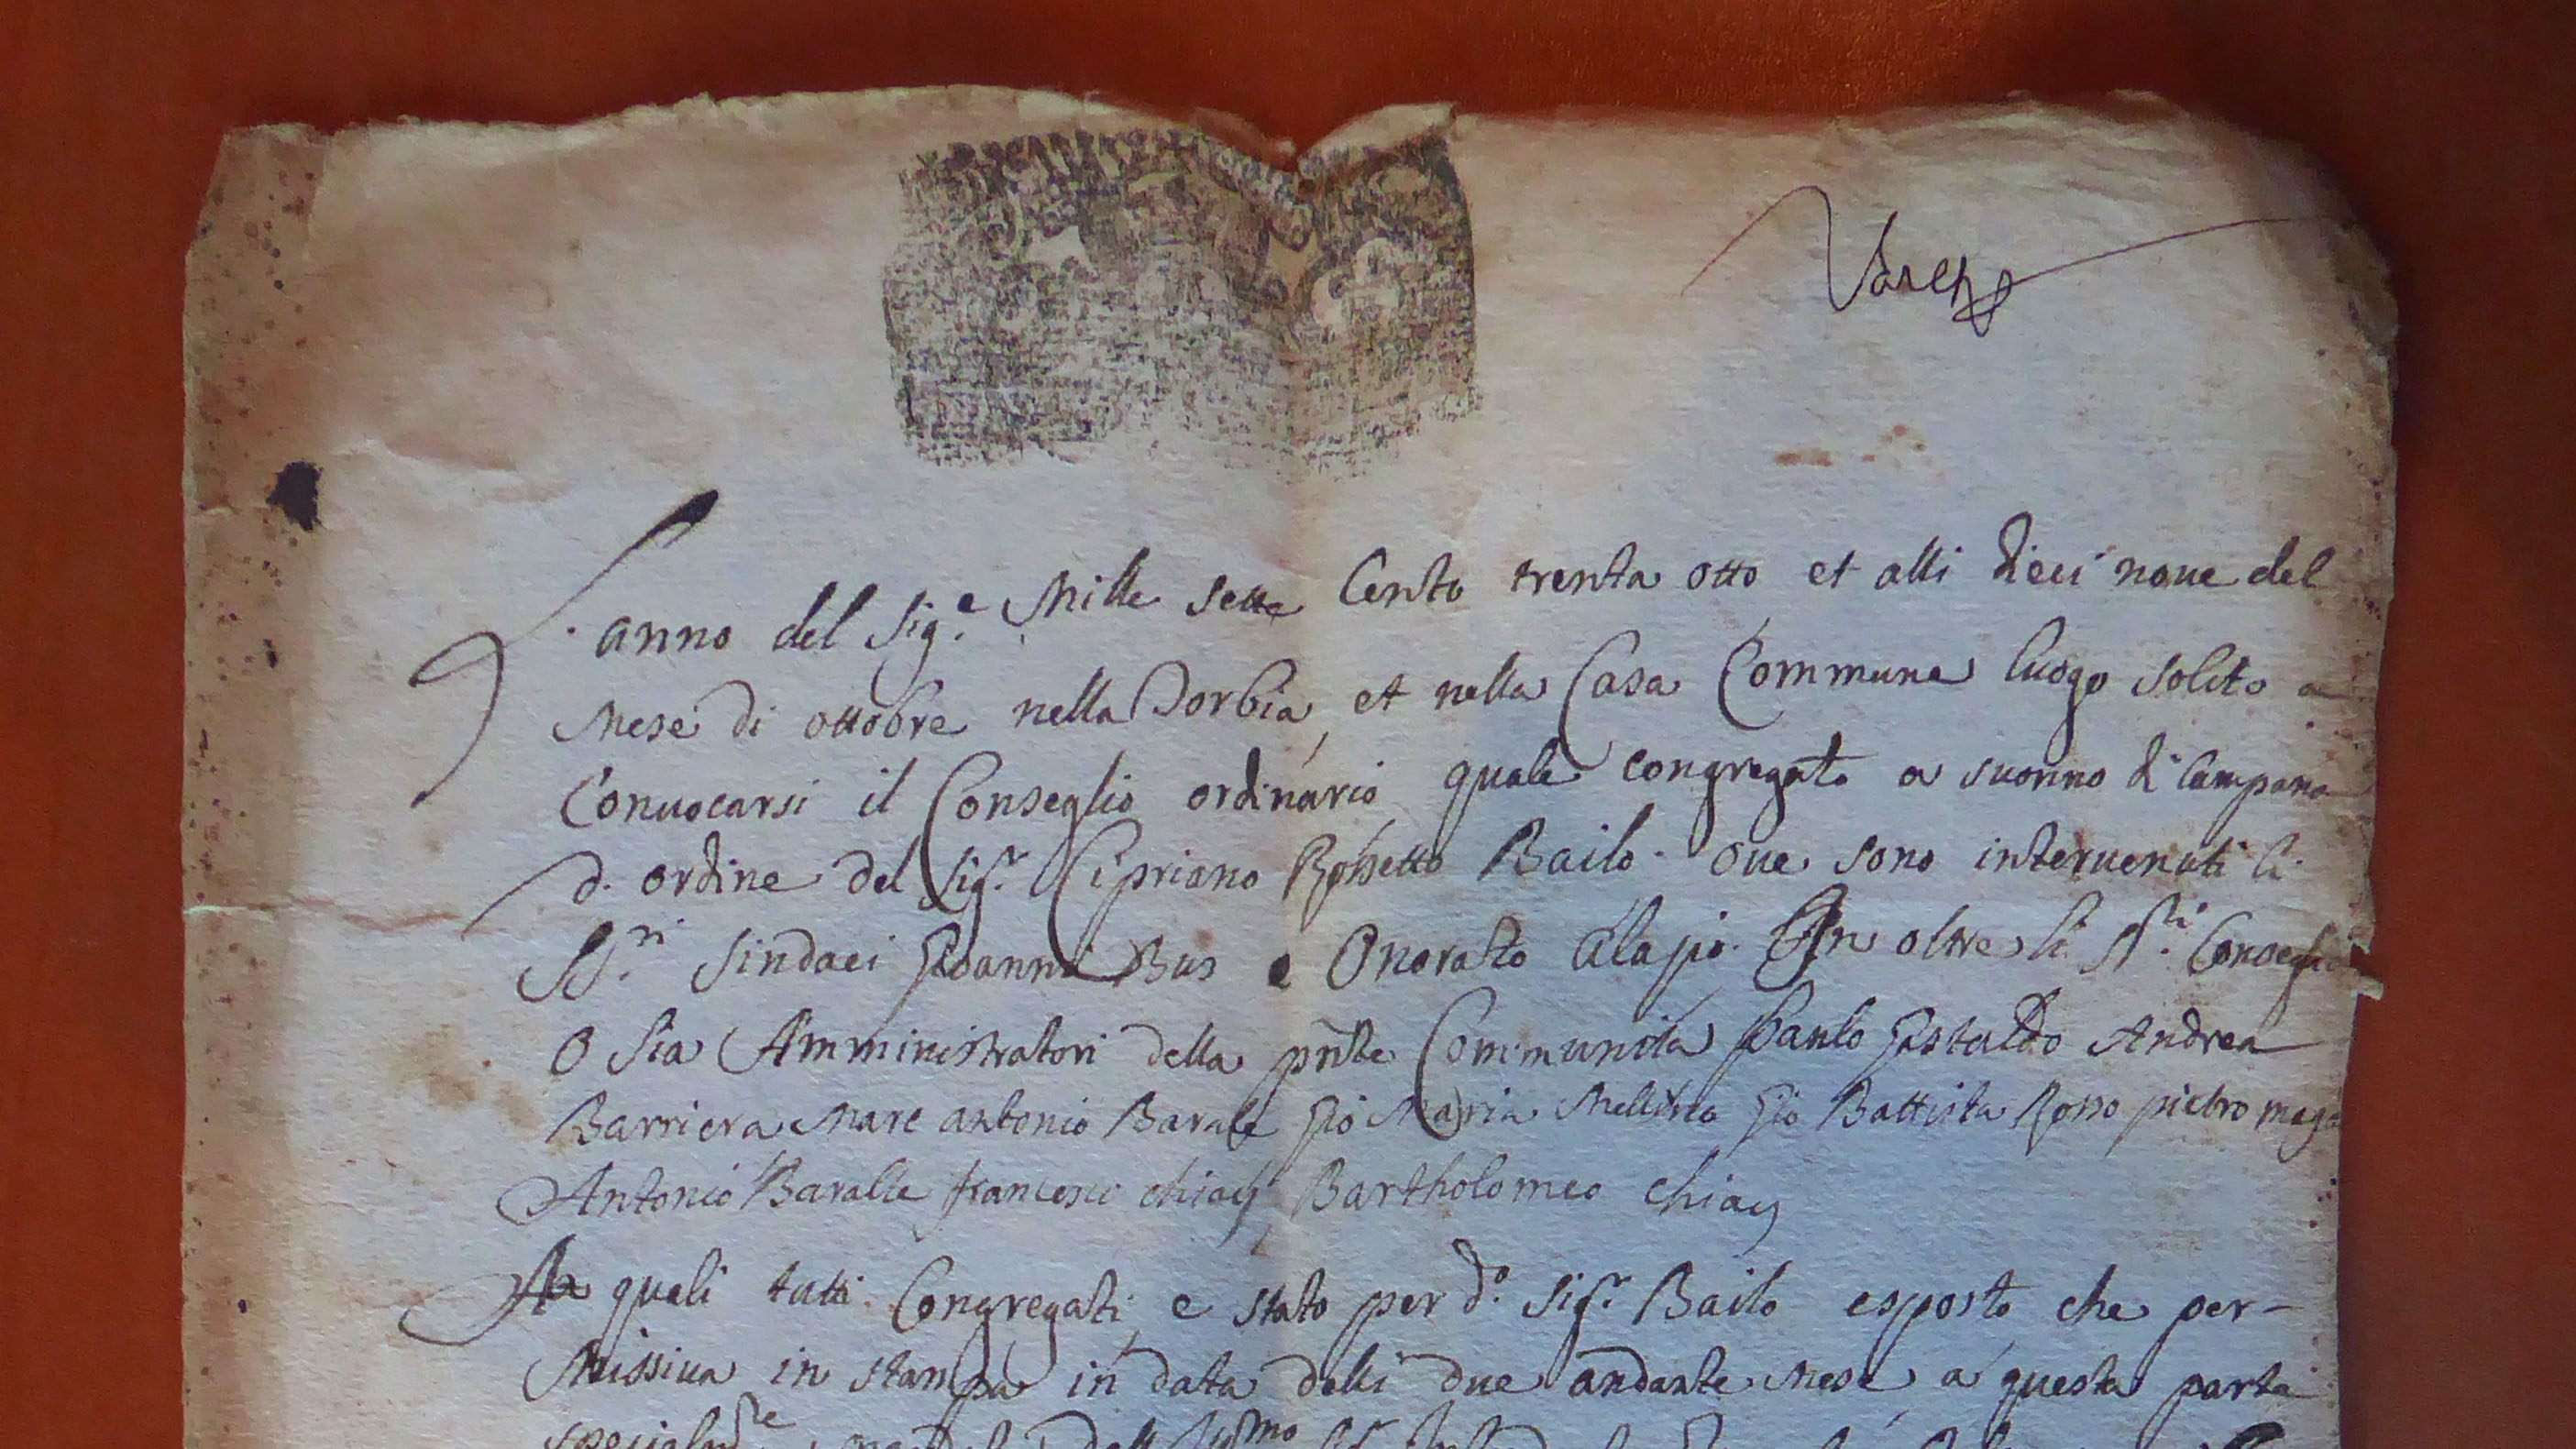 L'anno del Sig.e Mille sette Cento trenta otto et alli dieci noue del
Mese di ottobre nella Torbia, et nella Casa Commune luogo solito a
Conuocarsi il Conseglio ordinario, quale congregato a suonno di Campana
d. ordine del Sig.r Cipriano Rossetto Bailo. oue sono interuenuti li
SS.ri Sindaci Gioanni Bus e Onorato Alazio. In oltre li SS.ri
O sia Amministratori della pñte Communita Paulo Gastaldo Andrea
Barriera Marc antonio Barale Gio Maria Gio Battista Rosso pietro
Antonio Baralle francesco chiay, Bartholomeo chiay
quali tutti Congregati, e stato per d.o Sig.r Bailo esposto che per-
Missiua in stampa in data delli due andante Mese a questa parte